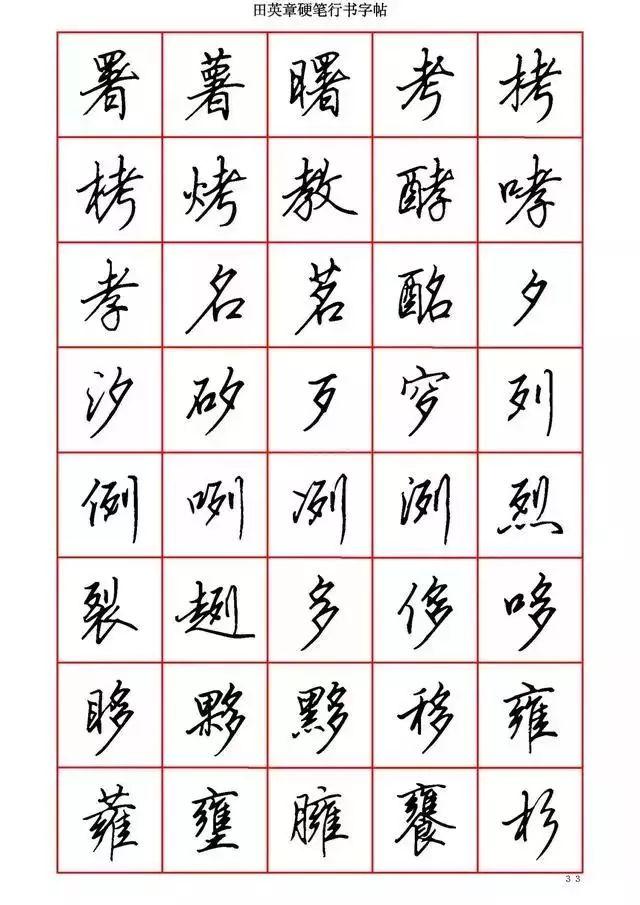 田英章硬笔行书字帖
署薯曙考拷
栲烤教酵哮
孝名茗酩夕
汐矽歹穸列
例咧冽洌烈
裂趔多侈哆
眵夥黟移雍
蕹壅臃饔杉
33